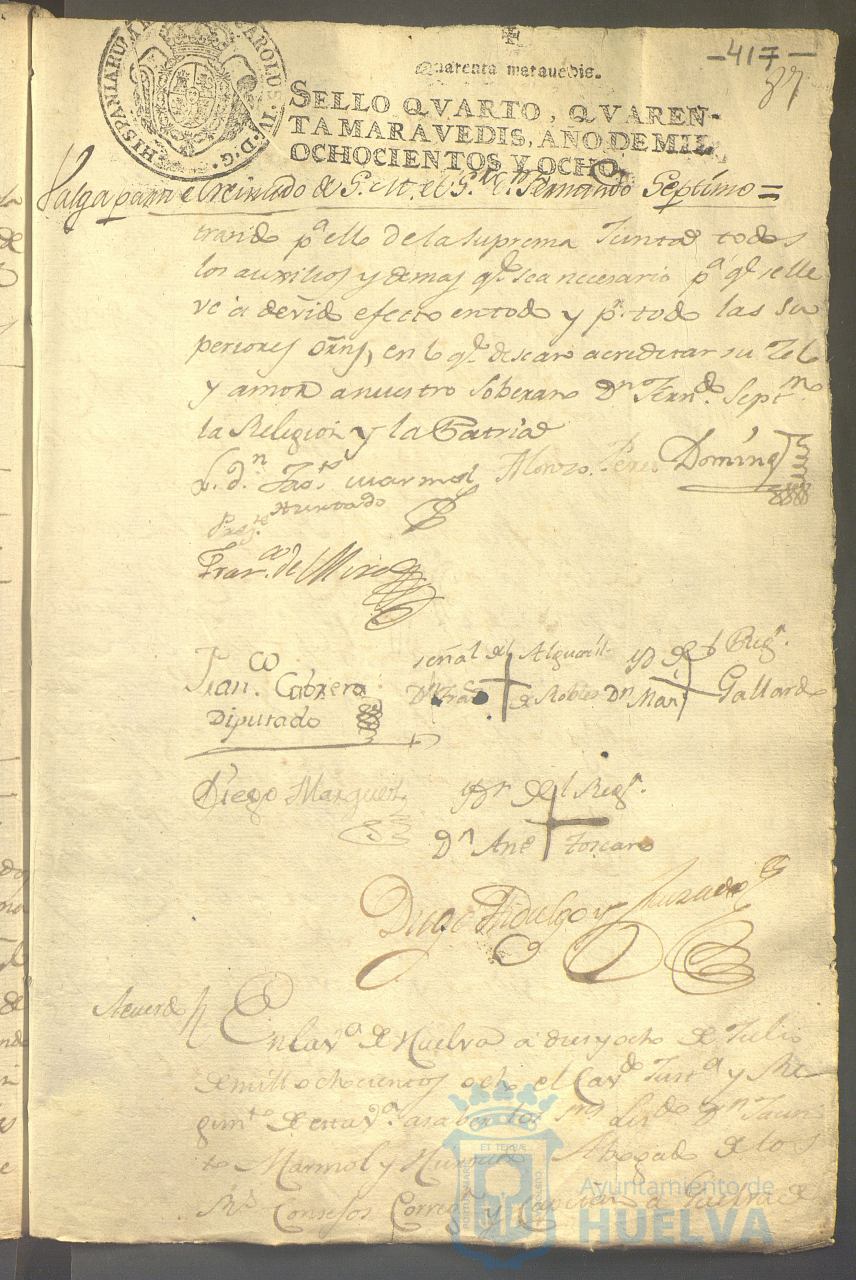 -417-
37
Quarenta maravedis.
HISPANIARUM CAROLUS IV D. G.
SELLO QVARTO, QVAREN-
TA MARAVEDIS, AÑO DE MIL
OCHOCIENTOS Y OCHO.
Valga para el Reinado de S. M. el Sr. Dn. Fernando Septimo =
trando pa. ello de la Suprema Junta todos
los auxilios y demas qe. sea necesario pa. qe. se lle
ve a devido efecto en todo y pr. todo las Su
periores Orns, en lo qe. desearo acreditar su Zelo
y amor a nuestro Soberano Dn. Ferndo. Septmo.
la Religion y la Patria
L. dn. Jacto. Marmol Alonzo Perez Domingz
Hurtado
Franco. de Mire
Franco. Cabrera
Diputado
señal del Alguacil
Dn. Franco. de Robles
yd del Regr.
Dn. Man Gallardo
Diego Marquez
yd. del Regr.
Dn. Anto. Toscano
Diego Hidalgo y Quezada
Acuerdo
En la va. de Huelva a dies y ocho de Julio
de mill ochocientos ocho el Cavdo. Justa. y Re
gimto. de esta va. a saber los Srs. Licdo. Dn. Jacin
to Marmol y Hurtado Abogado de los
Rs. Consejos Corregr. y Capitan a Guerra de
ET TERRÆ
Ayuntamiento de
HUELVA